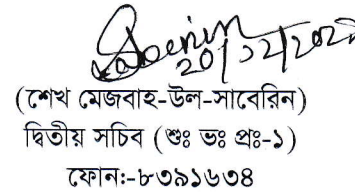 20/12/202
(শেখ মেজবাহ-উল-সাবেরিন)
দ্বিতীয় সচিব (শুঃ ভঃ প্রঃ-১)
ফোন:-৮৩৯১৬৩৪